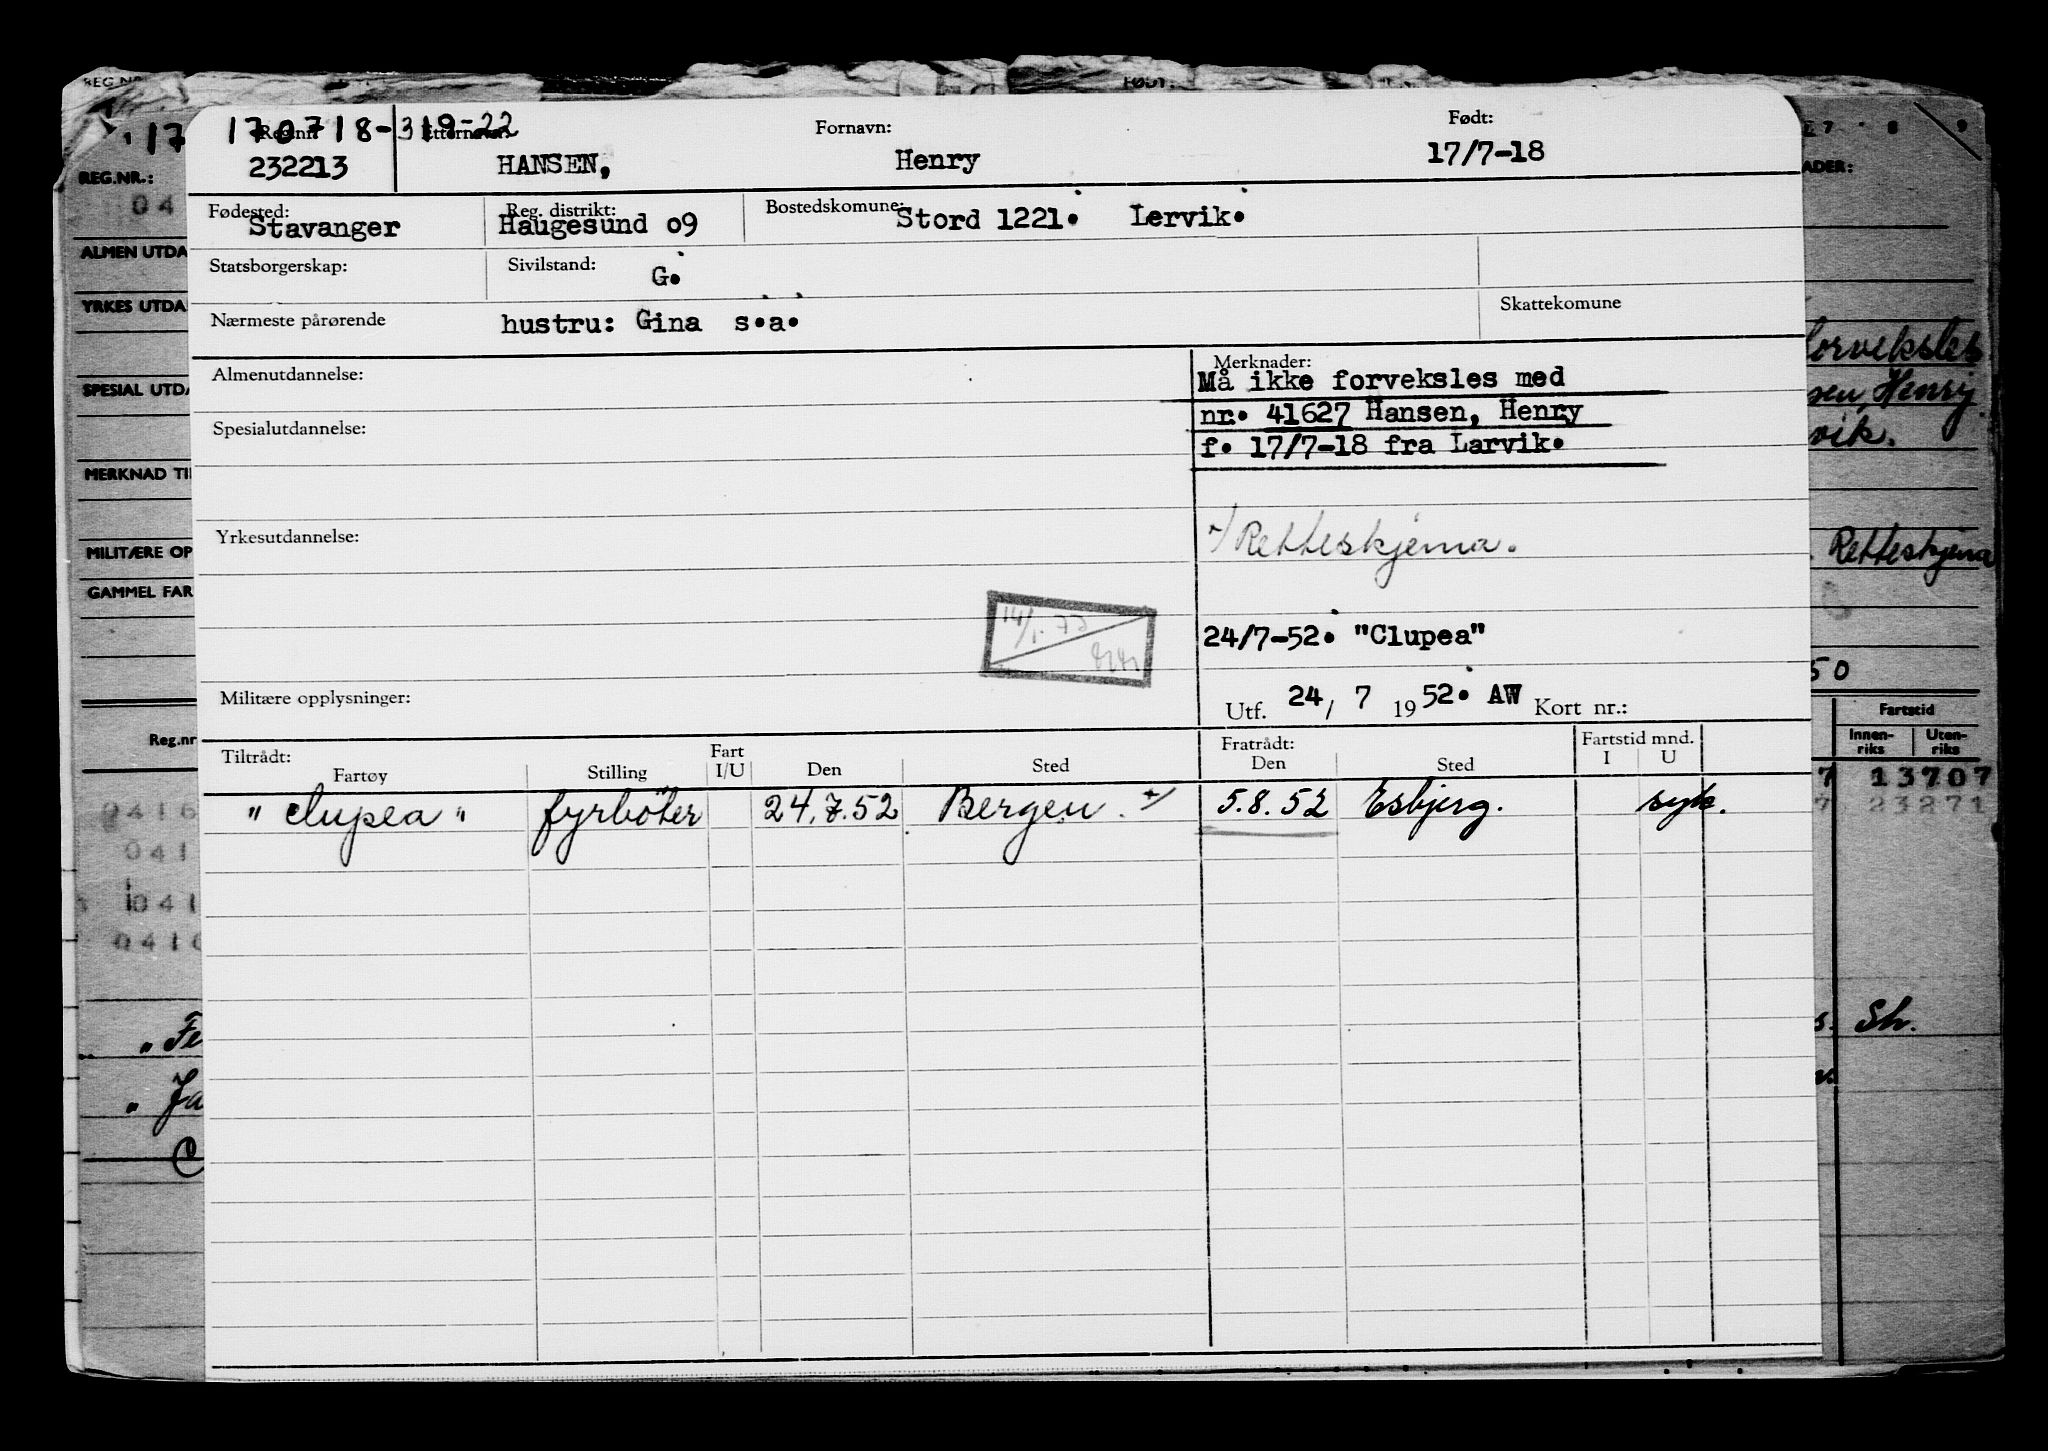 170718-319-22
Reg.nr. Etternavn: Fornavn: Født:
232213 HANSEN, Henry 17/7-18
Fødested: Reg. distrikt: Bostedskomune:
Stavanger Haugesund o9 Stord 1221. Lervik.
Statsborgerskap: Sivilstand: G.
Nærmeste pårørende hustru: Gina s.a. Skattekomune
Almenutdannelse: Merknader:
Må ikke forveksles med
nr. 41627 Hansen, Henry
Spesialutdannelse:
f. 17/7-18 fra Larvik.
Yrkesutdannelse: Retteskjema.
24/7-52. "Clupea"
Militære opplysninger: Utf. 24/ 7 1952. AW Kort nr.:
Tiltrådt: Fart Fratrådt: Fartstid mnd.
Fartøy Stilling I/U Den Sted Den Sted I U
"Clupea" fyrböter 24.7.52 Bergen. 5.8.52 Esbjerg. syk.
REG.NR.:
04
ALMEN UTDA
YRKES UTDA
SPESIAL UTDA
MERKNAD TI
MILITÆRE OP
GAMMEL FAR
Reg.nr
0416
041
041
0416
"Fe
"Ja
C
ADER:
orveksles
sen, Henry
vik.
Retteskjema
50
Fartstid
Innenriks Utenriks
7 13707
7 23271
s. Sh.